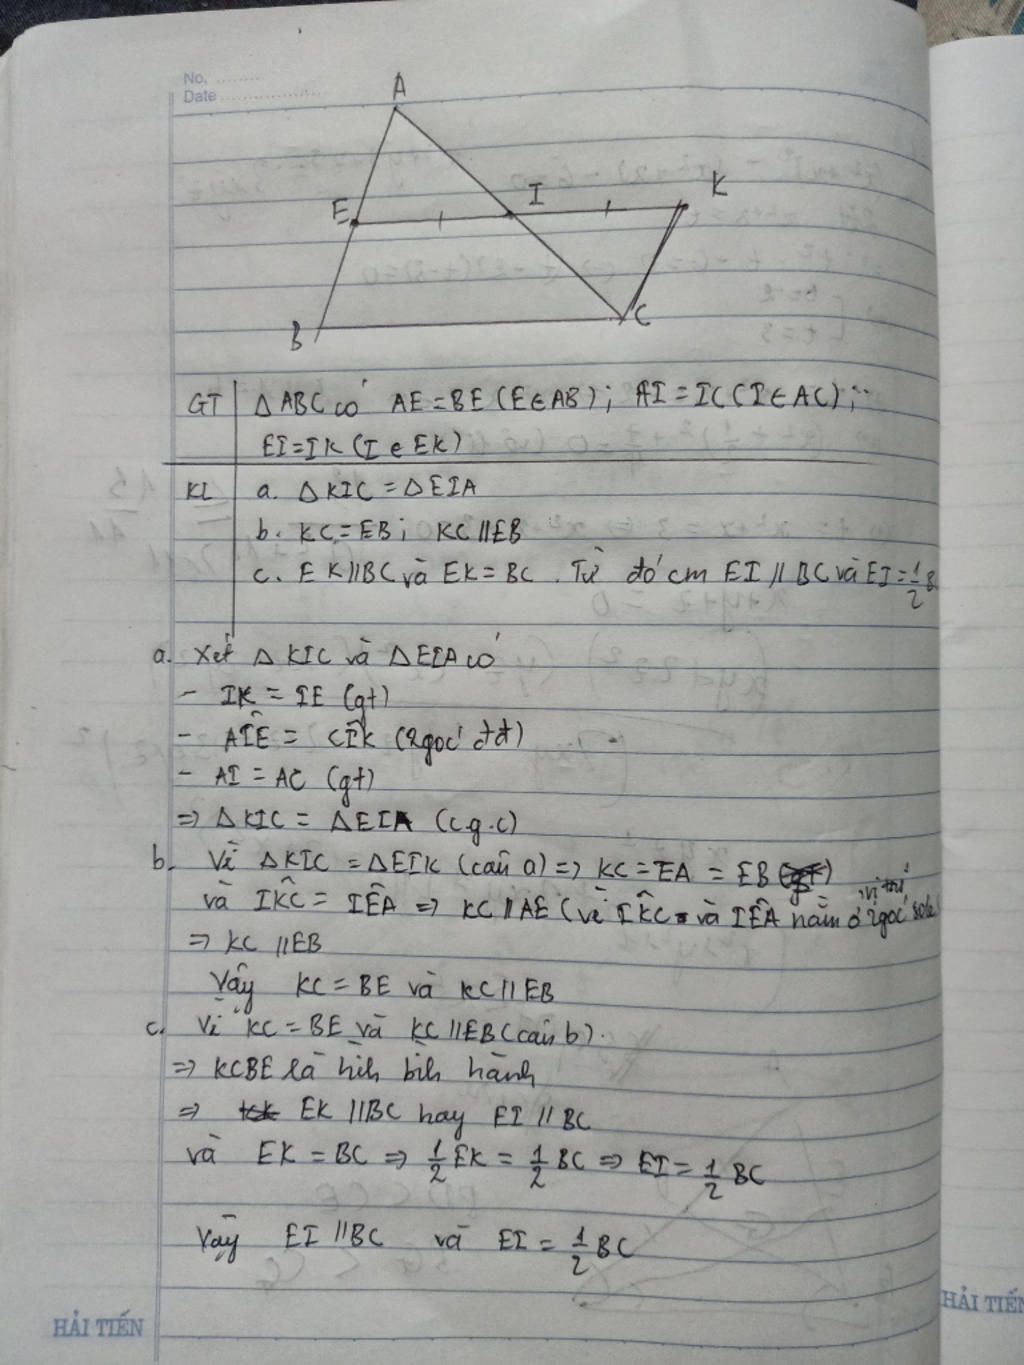 No. ..........
Date ......................
A
E
I
K
B
C
GT
Δ ABC có AE = BE (E ∈ AB) ; AI = IC (I ∈ AC) ;
EI = IK (I ∈ EK)
KL
a. Δ KIC = Δ EIA
b. KC = EB ; KC // EB
c. EK // BC và EK = BC . Từ đó cm EI // BC và EI = 1/2 B
a. Xét Δ KIC và Δ EIA có
- IK = IE (gt)
- AÎE = CÎK (2 góc đđ)
- AI = AC (gt)
=> Δ KIC = Δ EIA (c.g.c)
b. Vì Δ KIC = Δ EIK (câu a) => KC = EA = EB
và IK̂C = IÊA => KC // AE (vì IK̂C và IÊA nằm ở vị trí 2 góc sole)
=> KC // EB
Vậy KC = BE và KC // EB
c. Vì KC = BE và KC // EB (câu b).
=> KCBE là hình bình hành
=> EK // BC hay EI // BC
và EK = BC => 1/2 EK = 1/2 BC => EI = 1/2 BC
Vậy EI // BC và EI = 1/2 BC
HẢI TIẾN
HẢI TIẾN